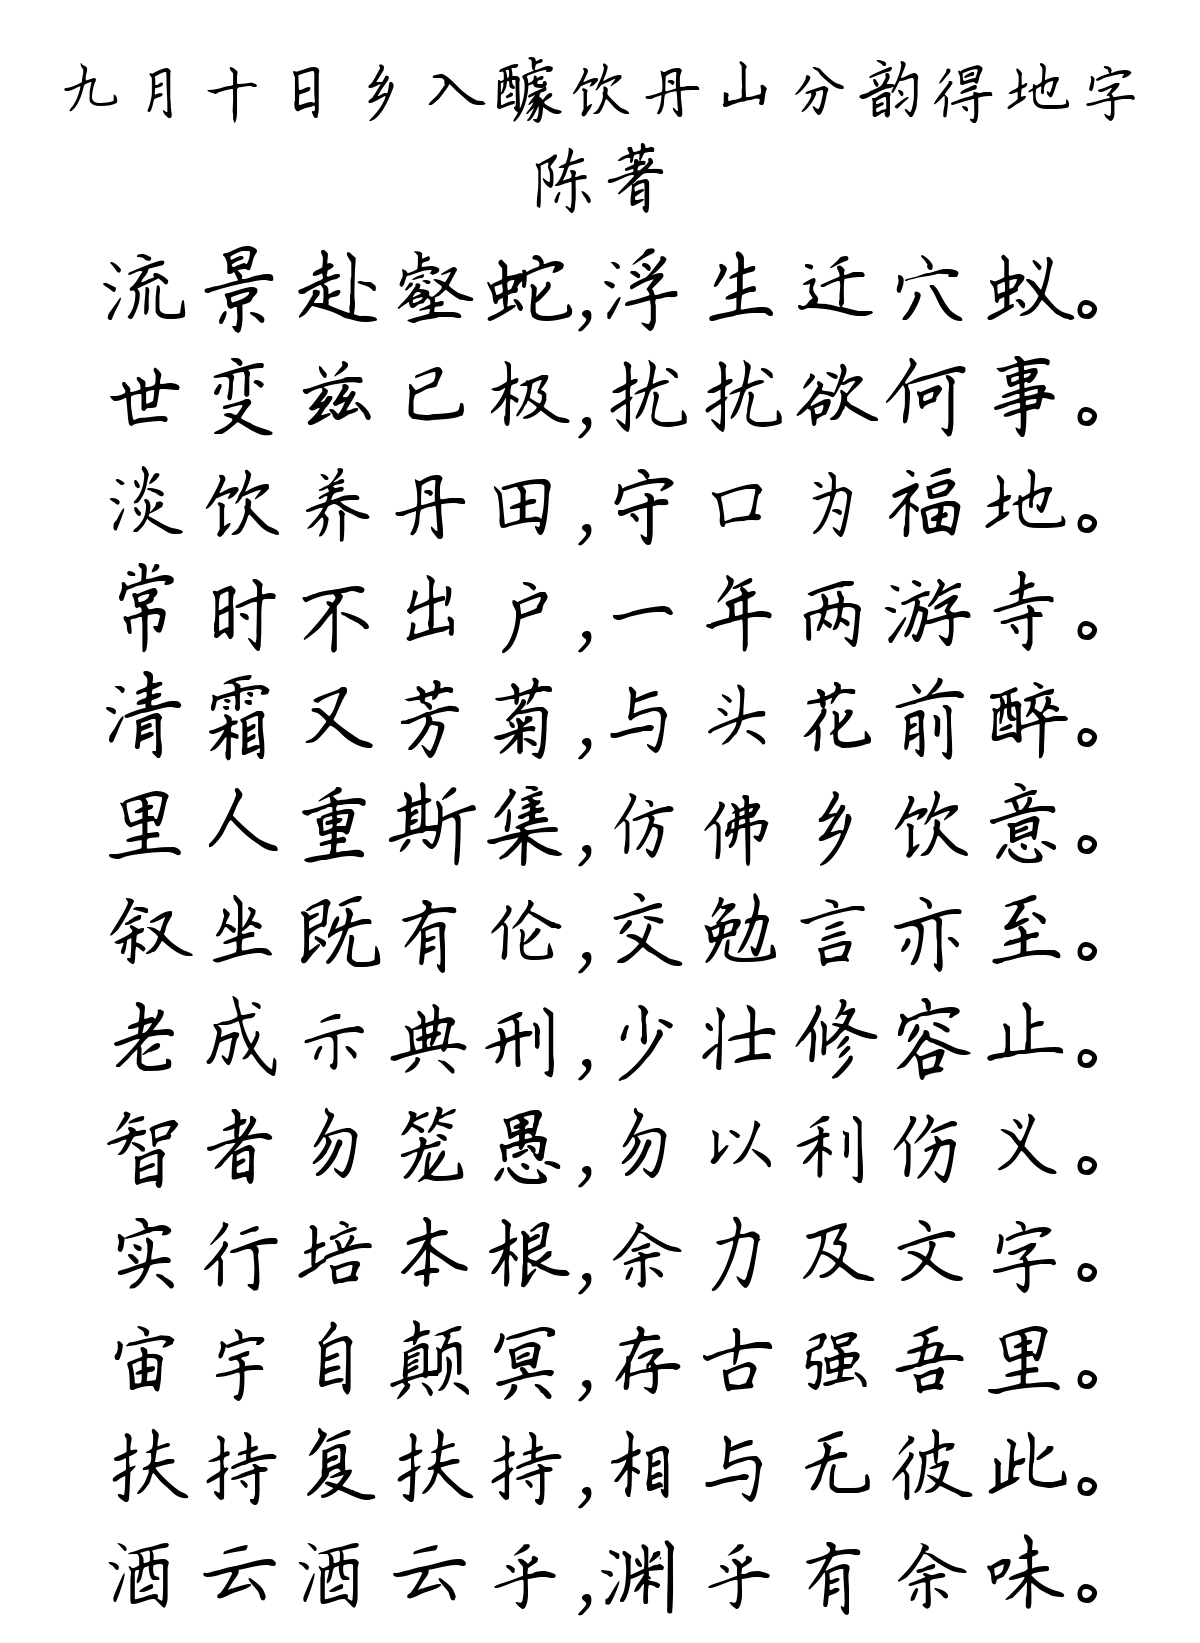 九月十日乡入醵饮丹山分韵得地字
陈著
流景赴壑蛇,浮生迁穴蚁。
世变兹已极,扰扰欲何事。
淡饮养丹田,守口为福地。
常时不出户,一年两游寺。
清霜又芳菊,与头花前醉。
里人重斯集,仿佛乡饮意。
叙坐既有伦,交勉言亦至。
老成示典刑,少壮修容止。
智者勿笼愚,勿以利伤义。
实行培本根,余力及文字。
宙宇自颠冥,存古强吾里。
扶持复扶持,相与无彼此。
酒云酒云乎,渊乎有余味。